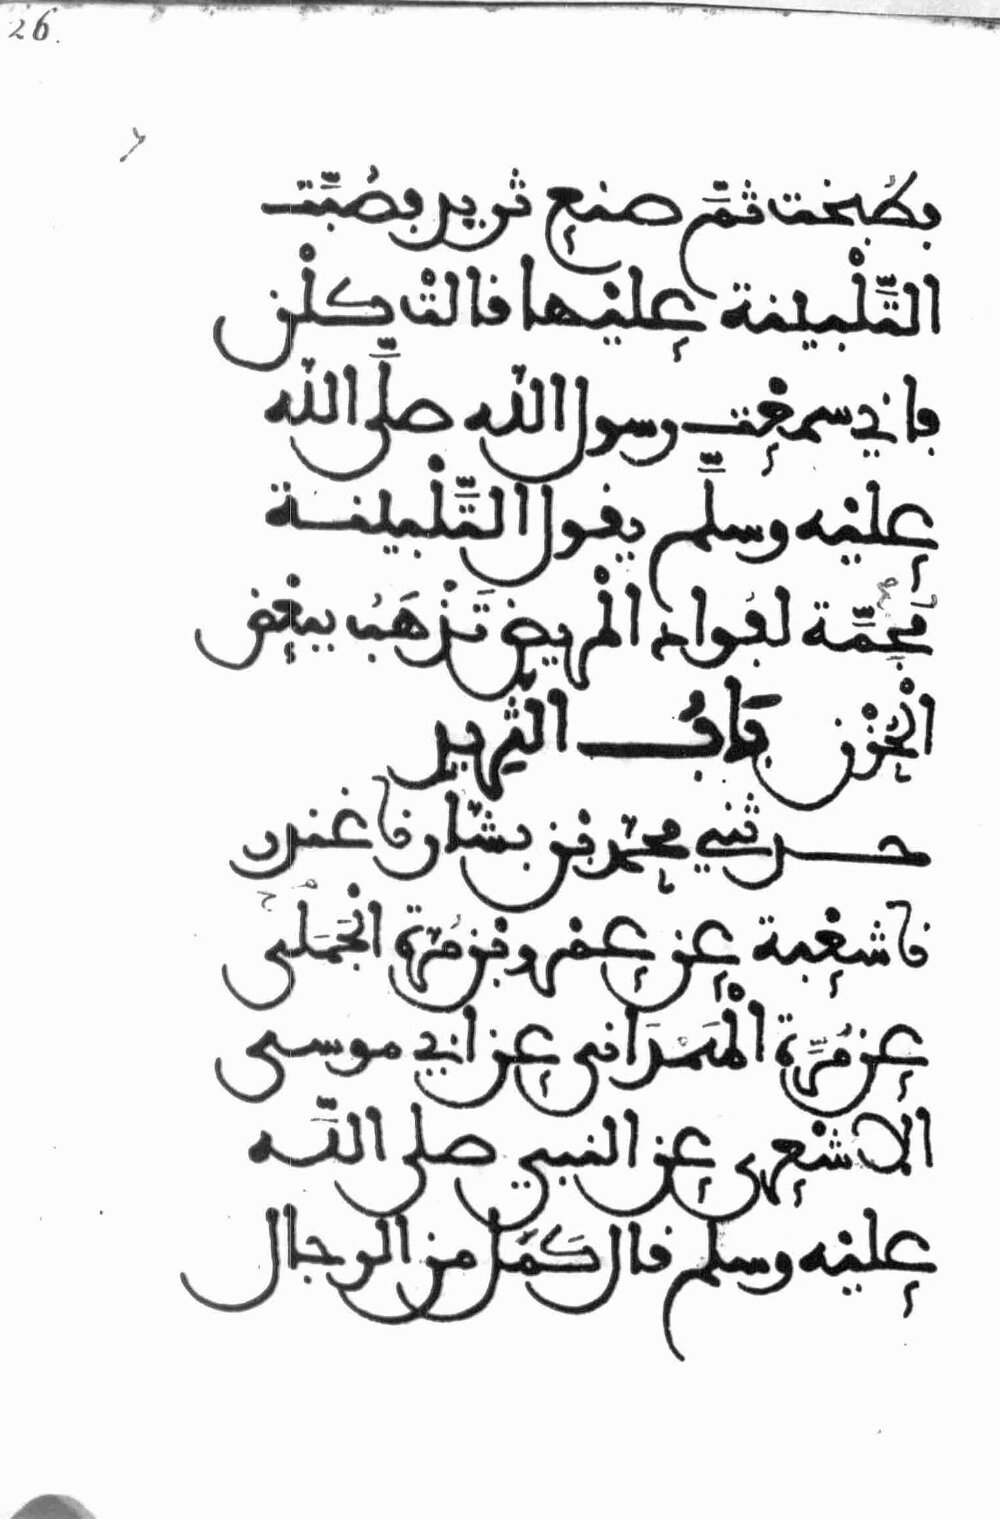 26.
فطُبخت ثمّ صنع ثريد فصُبّت
التَّلْبينة عليْها قالتْ كلْن
فاني سمعْت رسول الله صلَّى الله
عليْه وسلَّم يقول التَّلْبينة
مَجِمَّة لفُواد الْمريض تَذْهَبُ ببعْض
الْحُزْن بَابُ الثَّريد
حدثني محمّد بْن بشّار نا غندر
نا شعْبة عن عمْرو بْن مُرّة الْجَمَلي
عن مُرَّة الْهَمَداني عن ابي موسى
الاشْعري عن النبي صلى اللَّه
عليْه وسلم قال كَمَل من الرجال